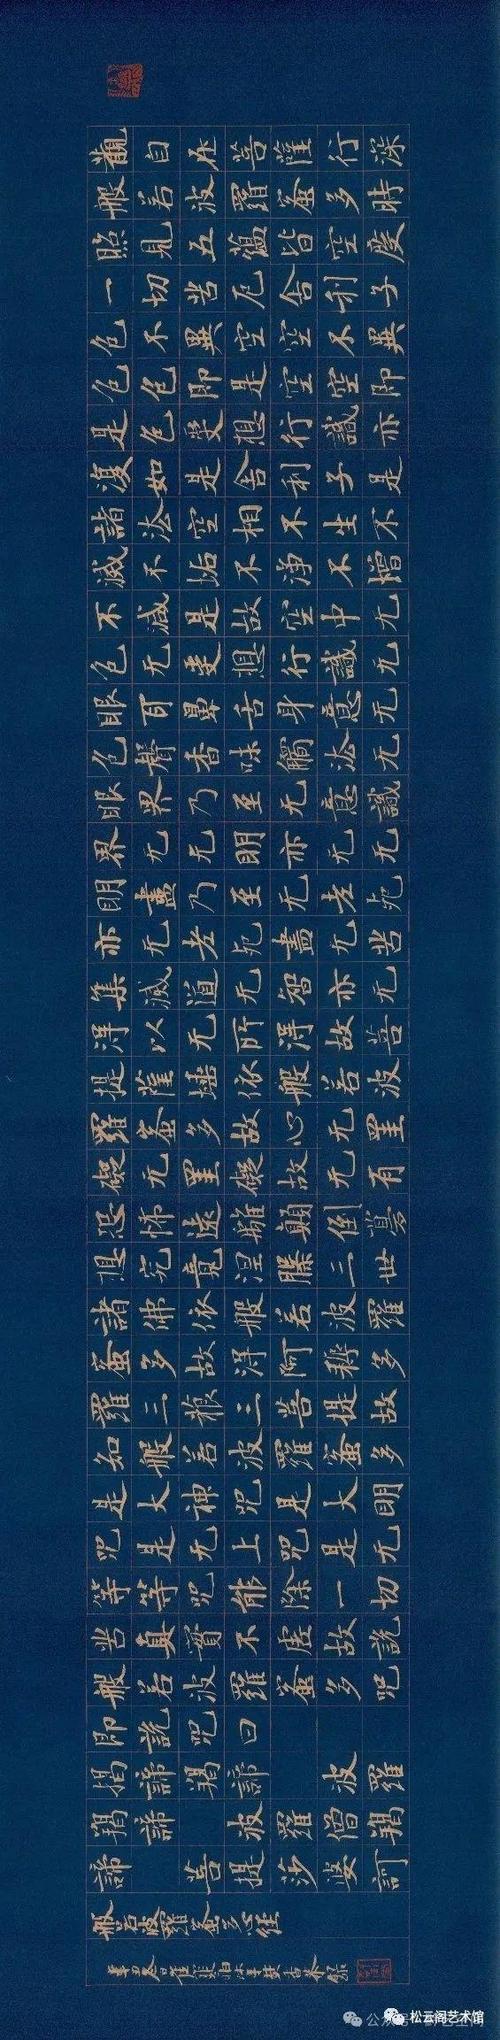 觀自在菩薩行深
般若波羅蜜多時
照見五蘊皆空度
一切苦厄舍利子
色不異空空不異
色色即是空空即
是色受想行識亦
復如是舍利子是
諸法空相不生不
滅不垢不淨不增
不減是故空中无
色无受想行識无
眼耳鼻舌身意无
色聲香味觸法无
眼界乃至无意識
界无无明亦无无
明盡乃至无老死
亦无老死盡无苦
集滅道无智亦无
得以无所得故菩
提薩埵依般若波
羅蜜多故心无罣
礙无罣礙故无有
恐怖遠離顛倒夢
想究竟涅槃三世
諸佛依般若波羅
蜜多故得阿耨多
羅三藐三菩提故
知般若波羅蜜多
是大神咒是大明
咒是无上咒是无
等等咒能除一切
苦真實不虛故說
般若波羅蜜多咒
即說咒曰
揭諦羯諦 波羅
羯諦 波羅僧羯
諦 菩提沙婆訶
般若波羅蜜多心經
松云阁艺术馆